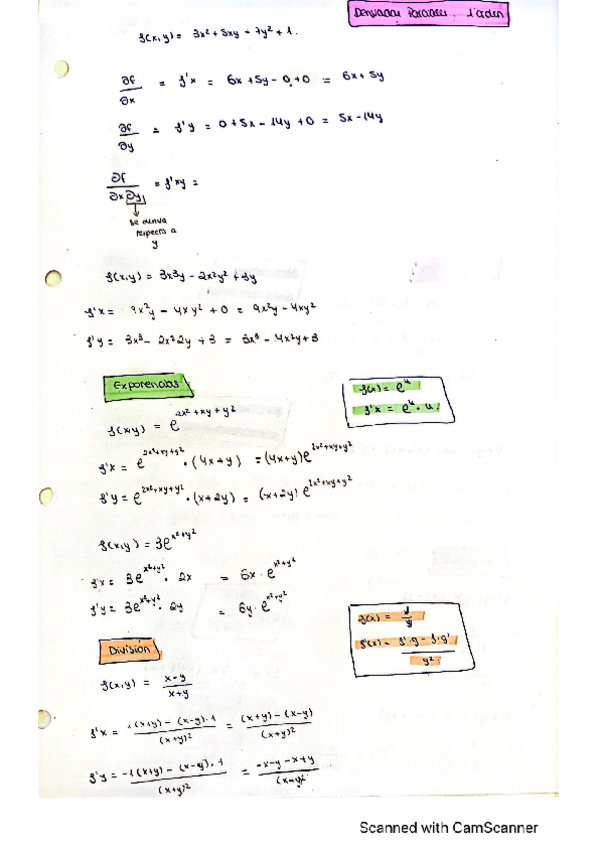 Derivadas Parciales 1º orden
f(x,y) = 3x² + 5xy - 7y² + 1.
∂f/∂x = f'x = 6x + 5y - 0 + 0 = 6x + 5y
∂f/∂y = f'y = 0 + 5x - 14y + 0 = 5x - 14y
∂f/∂x∂y = f'xy =
se deriva
respecto a
y
f(x,y) = 3x³y - 2x²y² + 3y
f'x = 9x²y - 4xy² + 0 = 9x²y - 4xy²
f'y = 3x³ - 2x²2y + 3 = 3x³ - 4x²y + 3
Exponencial
f(x) = e^u
f'x = e^u · u.
f(x,y) = e^2x²+xy+y²
f'x = e^2x²+xy+y² · (4x+y) = (4x+y) e^2x²+xy+y²
f'y = e^2x²+xy+y² · (x+2y) = (x+2y) e^2x²+xy+y²
f(x,y) = 3e^x²+y²
f'x = 3e^x²+y² · 2x = 6x · e^x²+y²
f'y = 3e^x²+y² · 2y = 6y · e^x²+y²
División
f(x) = f/g
f'(x) = f'·g - f·g' / g²
f(x,y) = x-y / x+y
f'x = 1(x+y) - (x-y)·1 / (x+y)² = (x+y) - (x-y) / (x+y)²
f'y = -1(x+y) - (x-y)·1 / (x+y)² = -x-y-x+y / (x+y)²
Scanned with CamScanner